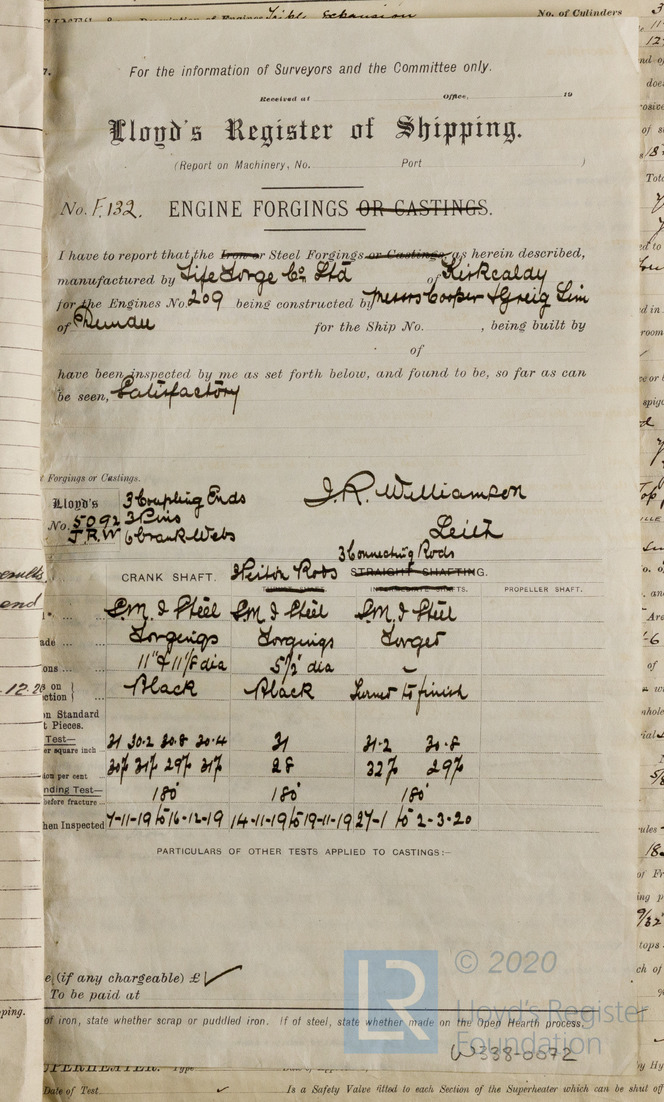 For the information of Surveyors and the Committee only.
Received at Office, 19
Lloyd's Register of Shipping.
(Report on Machinery, No. Port )
No. F.132. ENGINE FORGINGS OR CASTINGS.
I have to report that the Iron or Steel Forgings or Castings, as herein described,
manufactured by Fife Forge Co. Ltd of Kirkcaldy
for the Engines No. 209 being constructed by Messrs Cooper & Greig Lim
of Dundee for the Ship No. , being built by
of
have been inspected by me as set forth below, and found to be, so far as can
be seen, Satisfactory
Forgings or Castings.
Lloyd's 3 Coupling Ends J.R. Williamson
No. 5092 3 Pins Leith
J.R.W 6 Crank Webs
3 Connecting Rods
CRANK SHAFT. Piston Rods STRAIGHT SHAFTING.
INTERMEDIATE SHAFTS. PROPELLER SHAFT.
S.M. I Steel S.M. I Steel S.M. I Steel
Forgings Forgings Forged
11" & 11 1/8 dia 5 1/2" dia –
Black Black Turned to finish
on Standard
t Pieces.
Test—
er square inch 31 30.2 30.8 30.4 31 31.2 30.8
ion per cent 30% 31% 29% 31% 28 32% 29%
nding Test—
before fracture 180° 180° 180°
hen Inspected 7-11-19 to 16-12-19 14-11-19 to 19-11-19 27-1 to 2-3-20
PARTICULARS OF OTHER TESTS APPLIED TO CASTINGS:–
e (if any chargeable) £
To be paid at
of iron, state whether scrap or puddled iron. If of steel, state whether made on the Open Hearth process.
W338-0072
LR
© 2020
Lloyd's Register
Foundation
No. of Cylinders
Date of Test Is a Safety Valve fitted to each Section of the Superheater which can be shut off